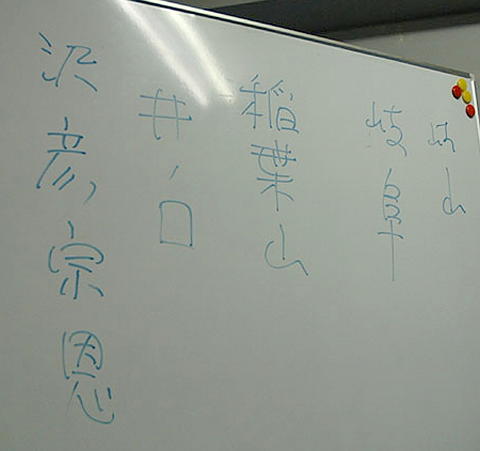 岐山
岐阜
稲葉山
井ノ口
沢彦宗恩